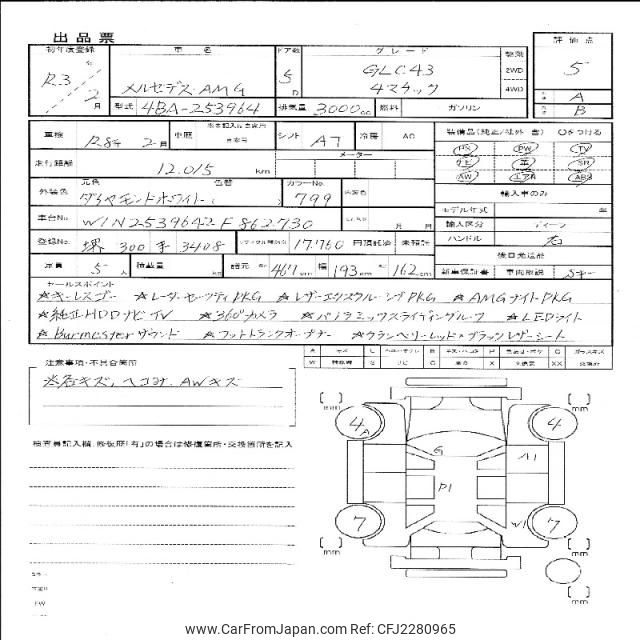 出品票
初年度登録 車名 ドア数 グレード 駆動 評価点
R.3年/2月 メルセデス.AMG 5D GLC43 4マチック 2WD 4WD 5
型式 4BA-253964 排気量 3000cc 燃料 ガソリン A B
車検 R8年 2月 シフト A7 冷房 AC
装備品(純正/社外 含) ○をつける
PS PW TV
ナビ 革 SR
AW エアB ABS
走行距離 12.015km メーター
輸入車のみ
外装色 元色 ダイヤモンドホワイト( ) 色替 カラーNo. 799
モデル年式 年
車台No. W1N2539642F862730 月 日
輸入区分 ディーラー
登録No. 堺 300 3408 17.760 円預託済 未預託
ハンドル 右
定員 5人 積載量 kg 諸元 467cm 幅 193cm 162cm
後日発送品
新車保証書 車両取説 Sキー
セールスポイント
★キーレスゴー ★レーダーセーフティPKG ★レザーエクスクルーシブPKG ★AMGナイトPKG
★純正HDDナビTV ★360°カメラ ★パノラミックスライディングルーフ ★LEDライト
★Burmesterサウンド ★フットトランクオープナー ★クランベリーレッド×ブラックレザーシート
注意事項・不具合箇所
A キズ U P C
W S X XX
各キズ、ヘコみ、AWキズ
検査員記入欄、修板歴「有」の場合は修復箇所・交換箇所を記入
4 A G A1 4
P1
7 W1 7
mm mm
mm mm
mm
FW
www.CarFromJapan.com Ref: CFJ2280965